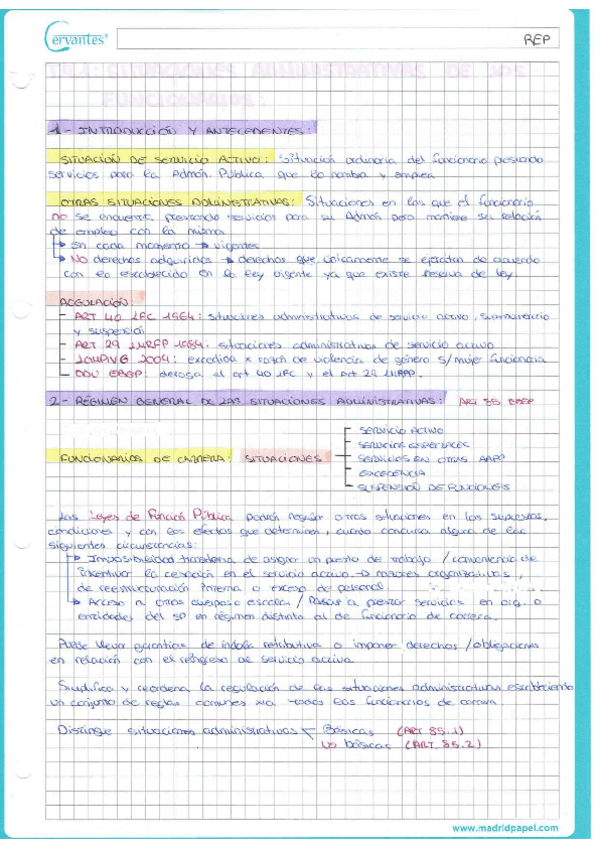 Cervantes®
REP
T.4.1: SITUACIONES ADMINISTRATIVAS DE LOS
FUNCIONARIOS:
1 - INTRODUCCIÓN Y ANTECEDENTES:
SITUACIÓN DE SERVICIO ACTIVO: Situación ordinaria del funcionario prestando
servicios para la Admón. Pública que lo nombra y emplea
OTRAS SITUACIONES ADMINISTRATIVAS: Situaciones en las que el funcionario
no se encuentra prestando servicios para su Admón pero mantiene su relación
de empleo con la misma
En cada momento → vigentes
No derechos adquiridos → derechos que únicamente se ejercitan de acuerdo
con lo establecido en la ley vigente ya que existe reserva de ley.
REGULACIÓN:
- ART 40 LFC 1964: situaciones administrativas de servicio activo, supernumerario
y suspensión
- ART 29 LMRFP 1984: situaciones administrativas de servicio activo
- LOMPIVG 2004: excedencia x razón de violencia de género s/ mujer funcionaria
- DDU EBEP: deroga el art 40 LFC y el art 29 LMRFP.
2 - RÉGIMEN GENERAL DE LAS SITUACIONES ADMINISTRATIVAS: ART 85 EBEP
SERVICIO ACTIVO
SERVICIOS ESPECIALES
FUNCIONARIOS DE CARRERA: SITUACIONES
SERVICIOS EN OTRAS AAPP
EXCEDENCIA
SUSPENSIÓN DE FUNCIONES
Las Leyes de Función Pública podrán regular otras situaciones en los supuestos,
condiciones y con los efectos que determinen, cuando concurra alguna de las
siguientes circunstancias:
Imposibilidad transitoria de asignar un puesto de trabajo / conveniencia de
incentivar la cesación en el servicio activo → razones organizativas,
de reestructuración interna o exceso de personal.
Acceso a otros cuerpos o escalas / Pasar a prestar servicios en org. o
entidades del SP en régimen distinto al de funcionario de carrera.
Puede llevar garantías de índole retributiva o imponer derechos / obligaciones
en relación con el reingreso al servicio activo
Simplifica y reordena la regulación de las situaciones administrativas estableciendo
un conjunto de reglas comunes xa todos los funcionarios de carrera
Distingue situaciones administrativas < Básicas (ART 85.1)
No básicas (ART 85.2)
www.madridpapel.com